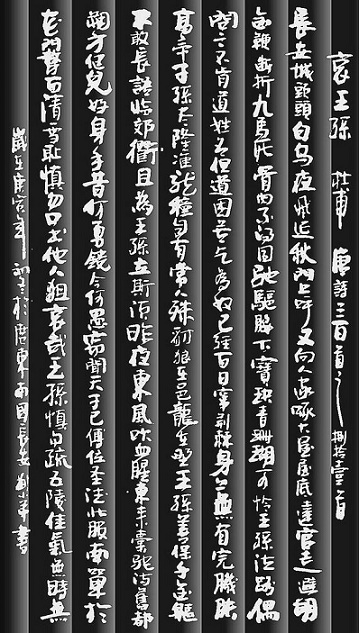 哀王孫 杜甫 唐詩三百首之 捌拾壹首
長安城頭頭白烏夜飛延秋門上呼又向人家啄大屋屋底達官走避胡
金鞭斷折九馬死骨肉不得同馳驅腰下寶玦青珊瑚可憐王孫泣路隅
問之不肯道姓名但道困苦乞為奴已經百日竄荊棘身上無有完肌膚
高帝子孫盡隆準龍種自與常人殊豺狼在邑龍在野王孫善保千金軀
不敢長語臨郊衢且為王孫立斯須昨夜東風吹血腥東來橐駝滿舊都
朔方健兒好身手昔何勇銳今何愚竊聞天子已傳位聖德北服南單於
花門剺面請雪恥慎勿出口他人狙哀哉王孫慎勿疏五陵佳氣無時無
歲在庚寅年 初冬於廣東南國長安 書